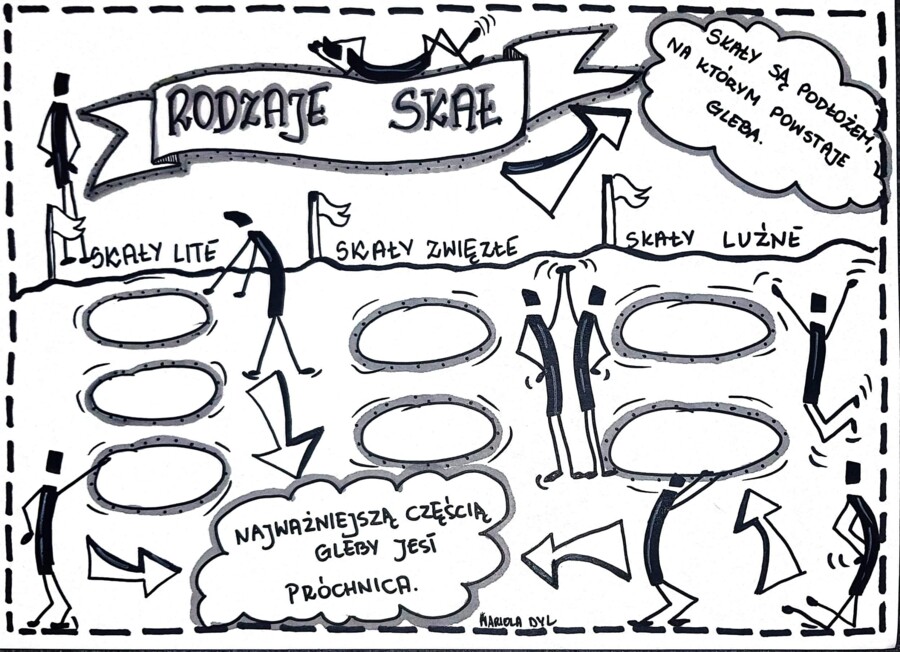 RODZAJE SKAŁ
SKAŁY SĄ PODŁOŻEM,
NA KTÓRYM POWSTAJE
GLEBA.
SKAŁY LITE
SKAŁY ZWIĘZŁE
SKAŁY LUŹNE
NAJWAŻNIEJSZĄ CZĘŚCIĄ
GLEBY JEST
PRÓCHNICA.
MARIOLA DYL